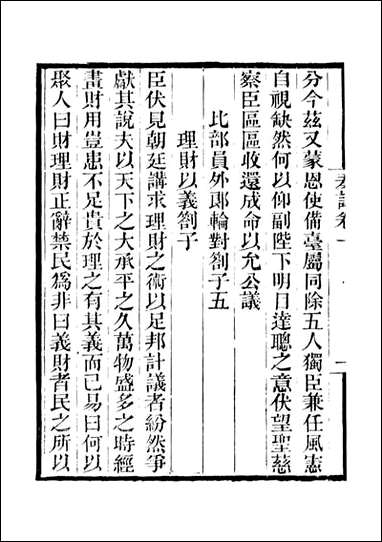 分今茲又蒙恩使備臺屬同除五人獨臣兼任風憲
自視缺然何以仰副陛下明目達聰之意伏望聖慈
察臣區區收還成命以允公議
比部員外郎輪對劄子五
理財以義劄子
臣伏見朝廷講求理財之術以足邦計議者紛然爭
獻其說夫以天下之大承平之久萬物盛多之時經
畫財用豈患不足貴於理之有其義而已易曰何以
聚人曰財理財正辭禁民爲非曰義財者民之所以
奏議卷一